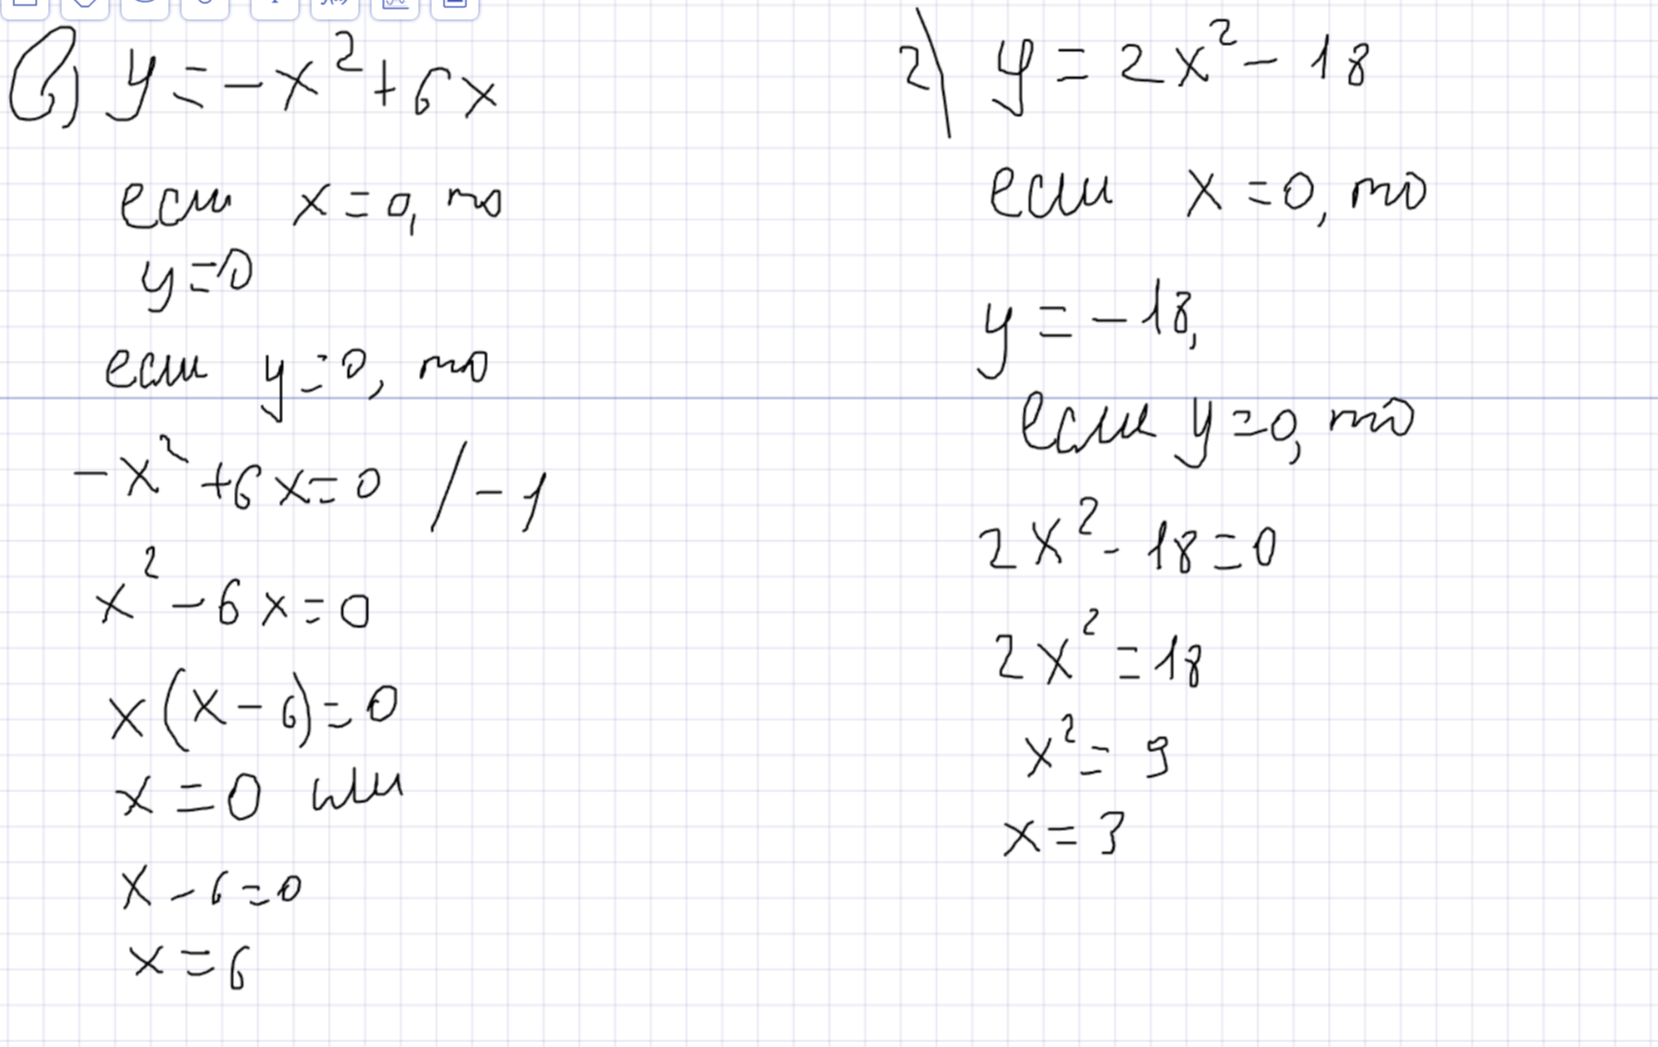 в) y = -x² + 6x
если x = 0, то
y = 0
если y = 0, то
-x² + 6x = 0 / -1
x² - 6x = 0
x(x - 6) = 0
x = 0 или
x - 6 = 0
x = 6
2) y = 2x² - 18
если x = 0, то
y = -18,
если y = 0, то
2x² - 18 = 0
2x² = 18
x² = 9
x = 3